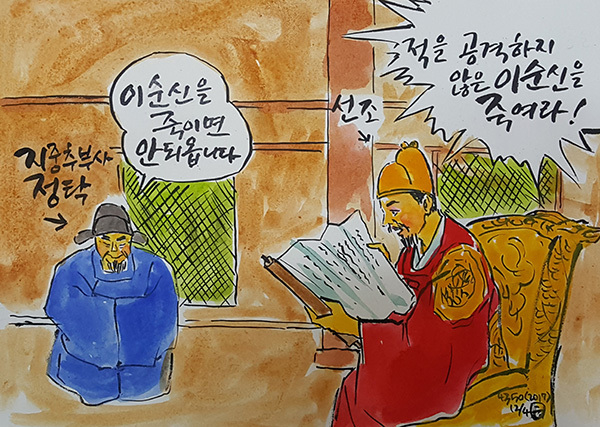 적을 공격하지
않은 이순신을
죽여라!
선조
이순신을
죽이면
안되옵니다
지중추부사
정탁
4350(2017)
12/4